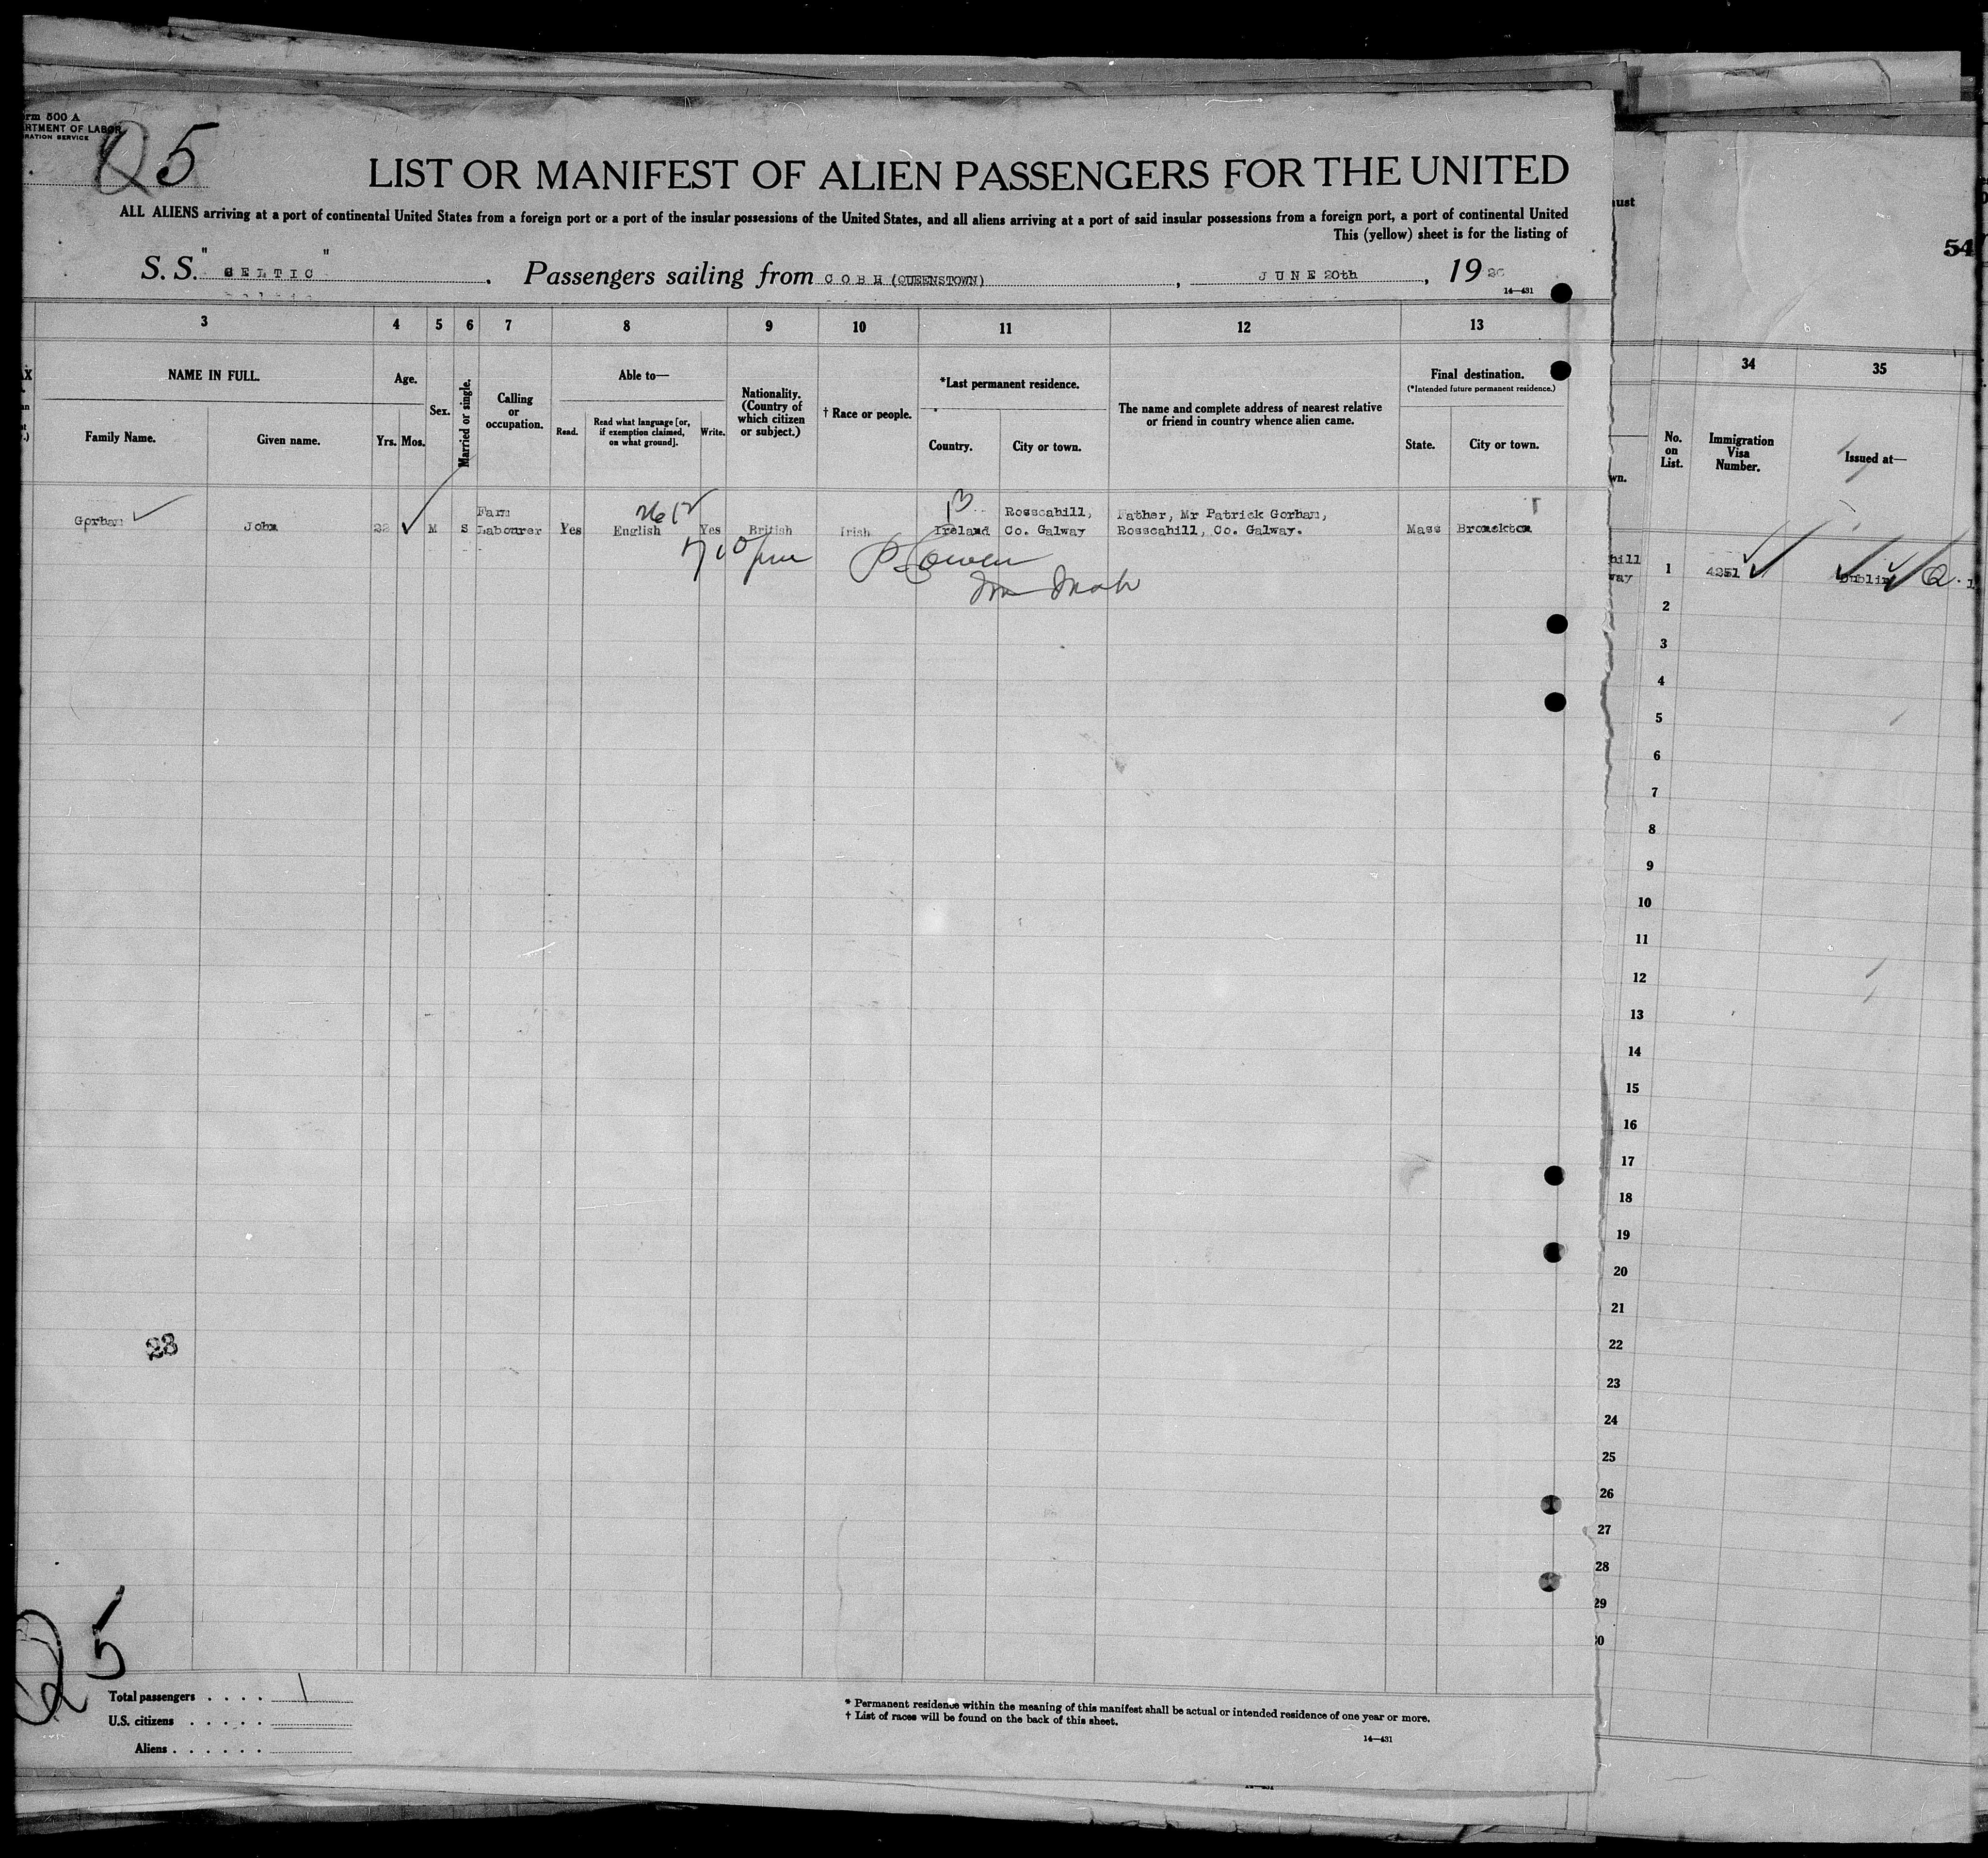 rm 500 A
RTMENT OF LABOR
RATION SERVICE
Q5
LIST OR MANIFEST OF ALIEN PASSENGERS FOR THE UNITED
ALL ALIENS arriving at a port of continental United States from a foreign port or a port of the insular possessions of the United States, and all aliens arriving at a port of said insular possessions from a foreign port, a port of continental United
This (yellow) sheet is for the listing of
S. S. " CELTIC " , Passengers sailing from COBH (QUEENSTOWN) , JUNE 20th , 19
14—431
3 4 5 6 7 8 9 10 11 12 13
NAME IN FULL.
Family Name. Given name.
Age.
Yrs. Mos.
Sex.
Married or single.
Calling
or
occupation.
Able to—
Read. Read what language [or,
if exemption claimed,
on what ground]. Write.
Nationality.
(Country of
which citizen
or subject.)
† Race or people.
*Last permanent residence.
Country. City or town.
The name and complete address of nearest relative
or friend in country whence alien came.
Final destination.
(*Intended future permanent residence.)
State. City or town.
Gorham John 22 M S Farm
Labourer Yes English Yes British Irish Ireland Rosscahill,
Co. Galway Father, Mr Patrick Gorham,
Rosscahill, Co. Galway. Mass Brockton
23
Q5
Total passengers . . . . 1
U.S. citizens . . . . .
Aliens . . . . . .
* Permanent residence within the meaning of this manifest shall be actual or intended residence of one year or more.
† List of races will be found on the back of this sheet.
14—431
ust
54
34 35
wn.
No.
on
List.
Immigration
Visa
Number.
Issued at—
hill
way
1 4251 Dublin Q.
2
3
4
5
6
7
8
9
10
11
12
13
14
15
16
17
18
19
20
21
22
23
24
25
26
27
28
29
30